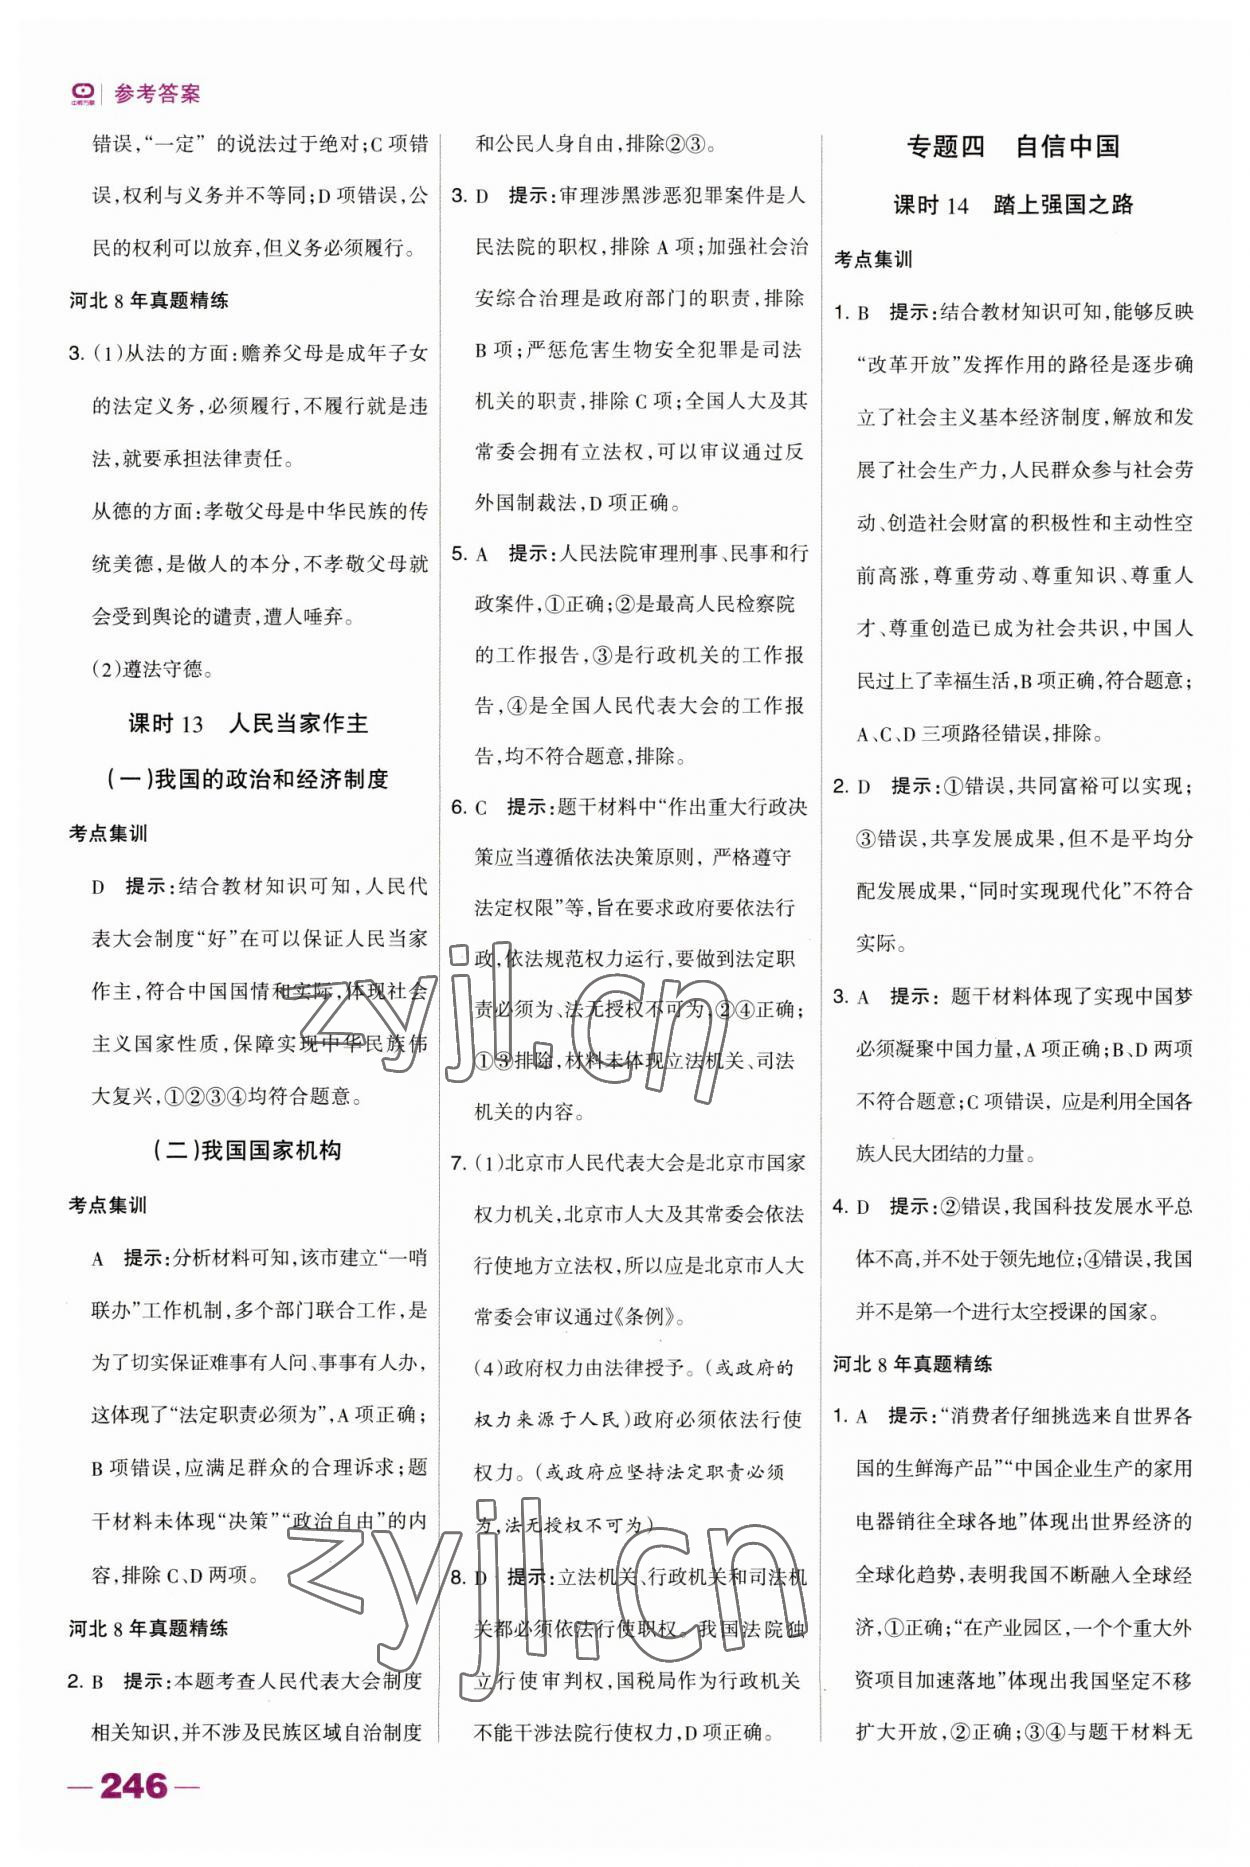 中教万联
参考答案
错误,“一定”的说法过于绝对;C 项错
误,权利与义务并不等同;D 项错误,公
民的权利可以放弃,但义务必须履行。
河北 8 年真题精练
3. (1)从法的方面:赡养父母是成年子女
的法定义务,必须履行,不履行就是违
法,就要承担法律责任。
从德的方面:孝敬父母是中华民族的传
统美德,是做人的本分,不孝敬父母就
会受到舆论的谴责,遭人唾弃。
(2)遵法守德。
课时 13 人民当家作主
(一)我国的政治和经济制度
考点集训
D 提示:结合教材知识可知,人民代
表大会制度“好”在可以保证人民当家
作主,符合中国国情和实际,体现社会
主义国家性质,保障实现中华民族伟
大复兴,①②③④均符合题意。
(二)我国国家机构
考点集训
A 提示:分析材料可知,该市建立“一哨
联办”工作机制,多个部门联合工作,是
为了切实保证难事有人问、事事有人办,
这体现了“法定职责必须为”,A 项正确;
B 项错误,应满足群众的合理诉求;题
干材料未体现“决策”“政治自由”的内
容,排除 C、D 两项。
河北 8 年真题精练
2. B 提示:本题考查人民代表大会制度
相关知识,并不涉及民族区域自治制度
和公民人身自由,排除②③。
3. D 提示:审理涉黑涉恶犯罪案件是人
民法院的职权,排除 A 项;加强社会治
安综合治理是政府部门的职责,排除
B 项;严惩危害生物安全犯罪是司法
机关的职责,排除 C 项;全国人大及其
常委会拥有立法权,可以审议通过反
外国制裁法,D 项正确。
5. A 提示:人民法院审理刑事、民事和行
政案件,①正确;②是最高人民检察院
的工作报告,③是行政机关的工作报
告,④是全国人民代表大会的工作报
告,均不符合题意,排除。
6. C 提示:题干材料中“作出重大行政决
策应当遵循依法决策原则,严格遵守
法定权限”等,旨在要求政府要依法行
政,依法规范权力运行,要做到法定职
责必须为、法无授权不可为,②④正确;
①③排除,材料未体现立法机关、司法
机关的内容。
7. (1)北京市人民代表大会是北京市国家
权力机关,北京市人大及其常委会依法
行使地方立法权,所以应是北京市人大
常委会审议通过《条例》。
(4)政府权力由法律授予。(或政府的
权力来源于人民)政府必须依法行使
权力。(或政府应坚持法定职责必须
为,法无授权不可为)
8. D 提示:立法机关、行政机关和司法机
关都必须依法行使职权。我国法院独
立行使审判权,国税局作为行政机关
不能干涉法院行使权力,D 项正确。
专题四 自信中国
课时 14 踏上强国之路
考点集训
1. B 提示:结合教材知识可知,能够反映
“改革开放”发挥作用的路径是逐步确
立了社会主义基本经济制度,解放和发
展了社会生产力,人民群众参与社会劳
动、创造社会财富的积极性和主动性空
前高涨,尊重劳动、尊重知识、尊重人
才、尊重创造已成为社会共识,中国人
民过上了幸福生活,B 项正确,符合题意;
A、C、D 三项路径错误,排除。
2. D 提示:①错误,共同富裕可以实现;
③错误,共享发展成果,但不是平均分
配发展成果,“同时实现现代化”不符合
实际。
3. A 提示:题干材料体现了实现中国梦
必须凝聚中国力量,A 项正确;B、D 两项
不符合题意;C 项错误,应是利用全国各
族人民大团结的力量。
4. D 提示:②错误,我国科技发展水平总
体不高,并不处于领先地位;④错误,我国
并不是第一个进行太空授课的国家。
河北 8 年真题精练
1. A 提示:“消费者仔细挑选来自世界各
国的生鲜海产品”“中国企业生产的家用
电器销往全球各地”体现出世界经济的
全球化趋势,表明我国不断融入全球经
济,①正确;“在产业园区,一个个重大外
资项目加速落地”体现出我国坚定不移
扩大开放,②正确;③④与题干材料无
zyjl.cn
zyjl.cn
— 246 —